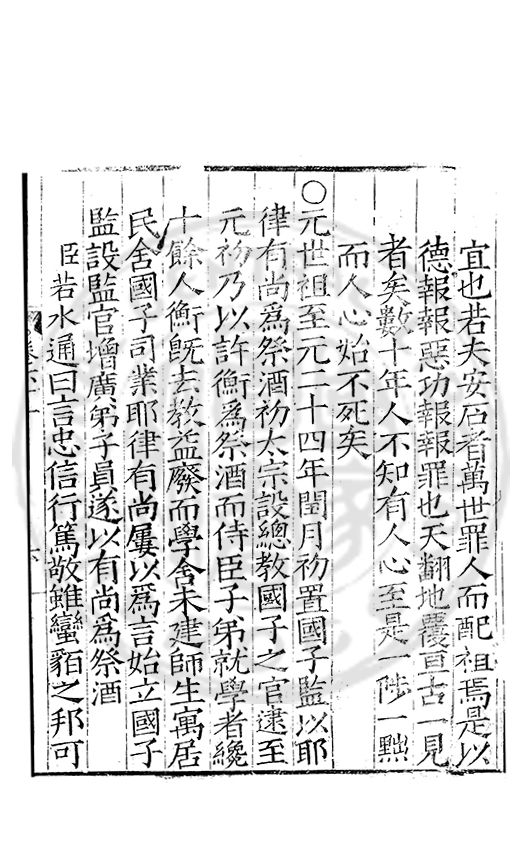 宜也若夫安石者萬世罪人而配祖焉是以
德報報惡功報報罪也天翻地覆亘古一見
者矣數十年人不知有人心至是一陟一黜
而人心始不死矣
○元世祖至元二十四年閏月初置國子監以耶
律有尚為祭酒初太宗設總教國子之官逮至
元初乃以許衡為祭酒而侍臣子弟就學者纔
十餘人衡旣去教益廢而學舍未建師生寓居
民舍國子司業耶律有尚屢以為言始立國子
監設監官增廣弟子員遂以有尚為祭酒
臣若水通曰言忠信行篤敬雖蠻貊之邦可